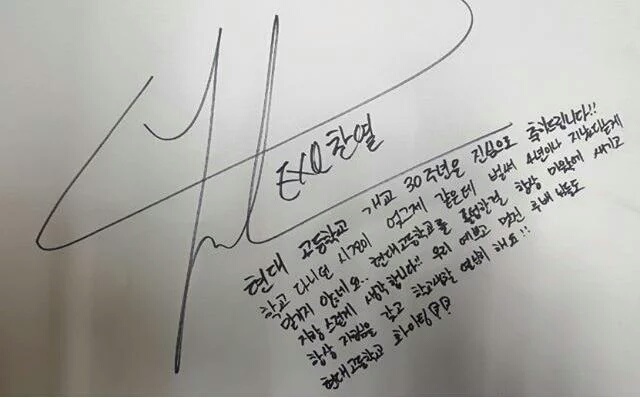 EXO 찬열
현대 고등학교 개교 30주년을 진심으로 축하드립니다!!
학교 다니던 시절이 엊그제 같은데 벌써 4년이나 지났다는게
믿기지 않네요.. 현대고등학교를 졸업한걸 항상 마음에 새기고
자랑스럽게 생각합니다!! 우리 예쁘고 멋진 후배님들도
항상 자부심을 갖고 학교생활 열심히 해요!!
현대고등학교 화이팅